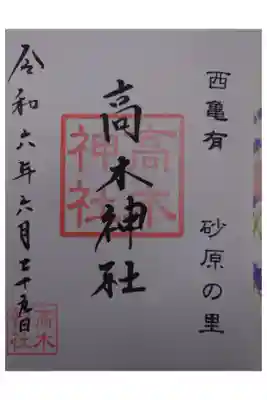 西亀有　砂原の里
高木神社
高木
神社
令和六年六月二十五日
高木
神社